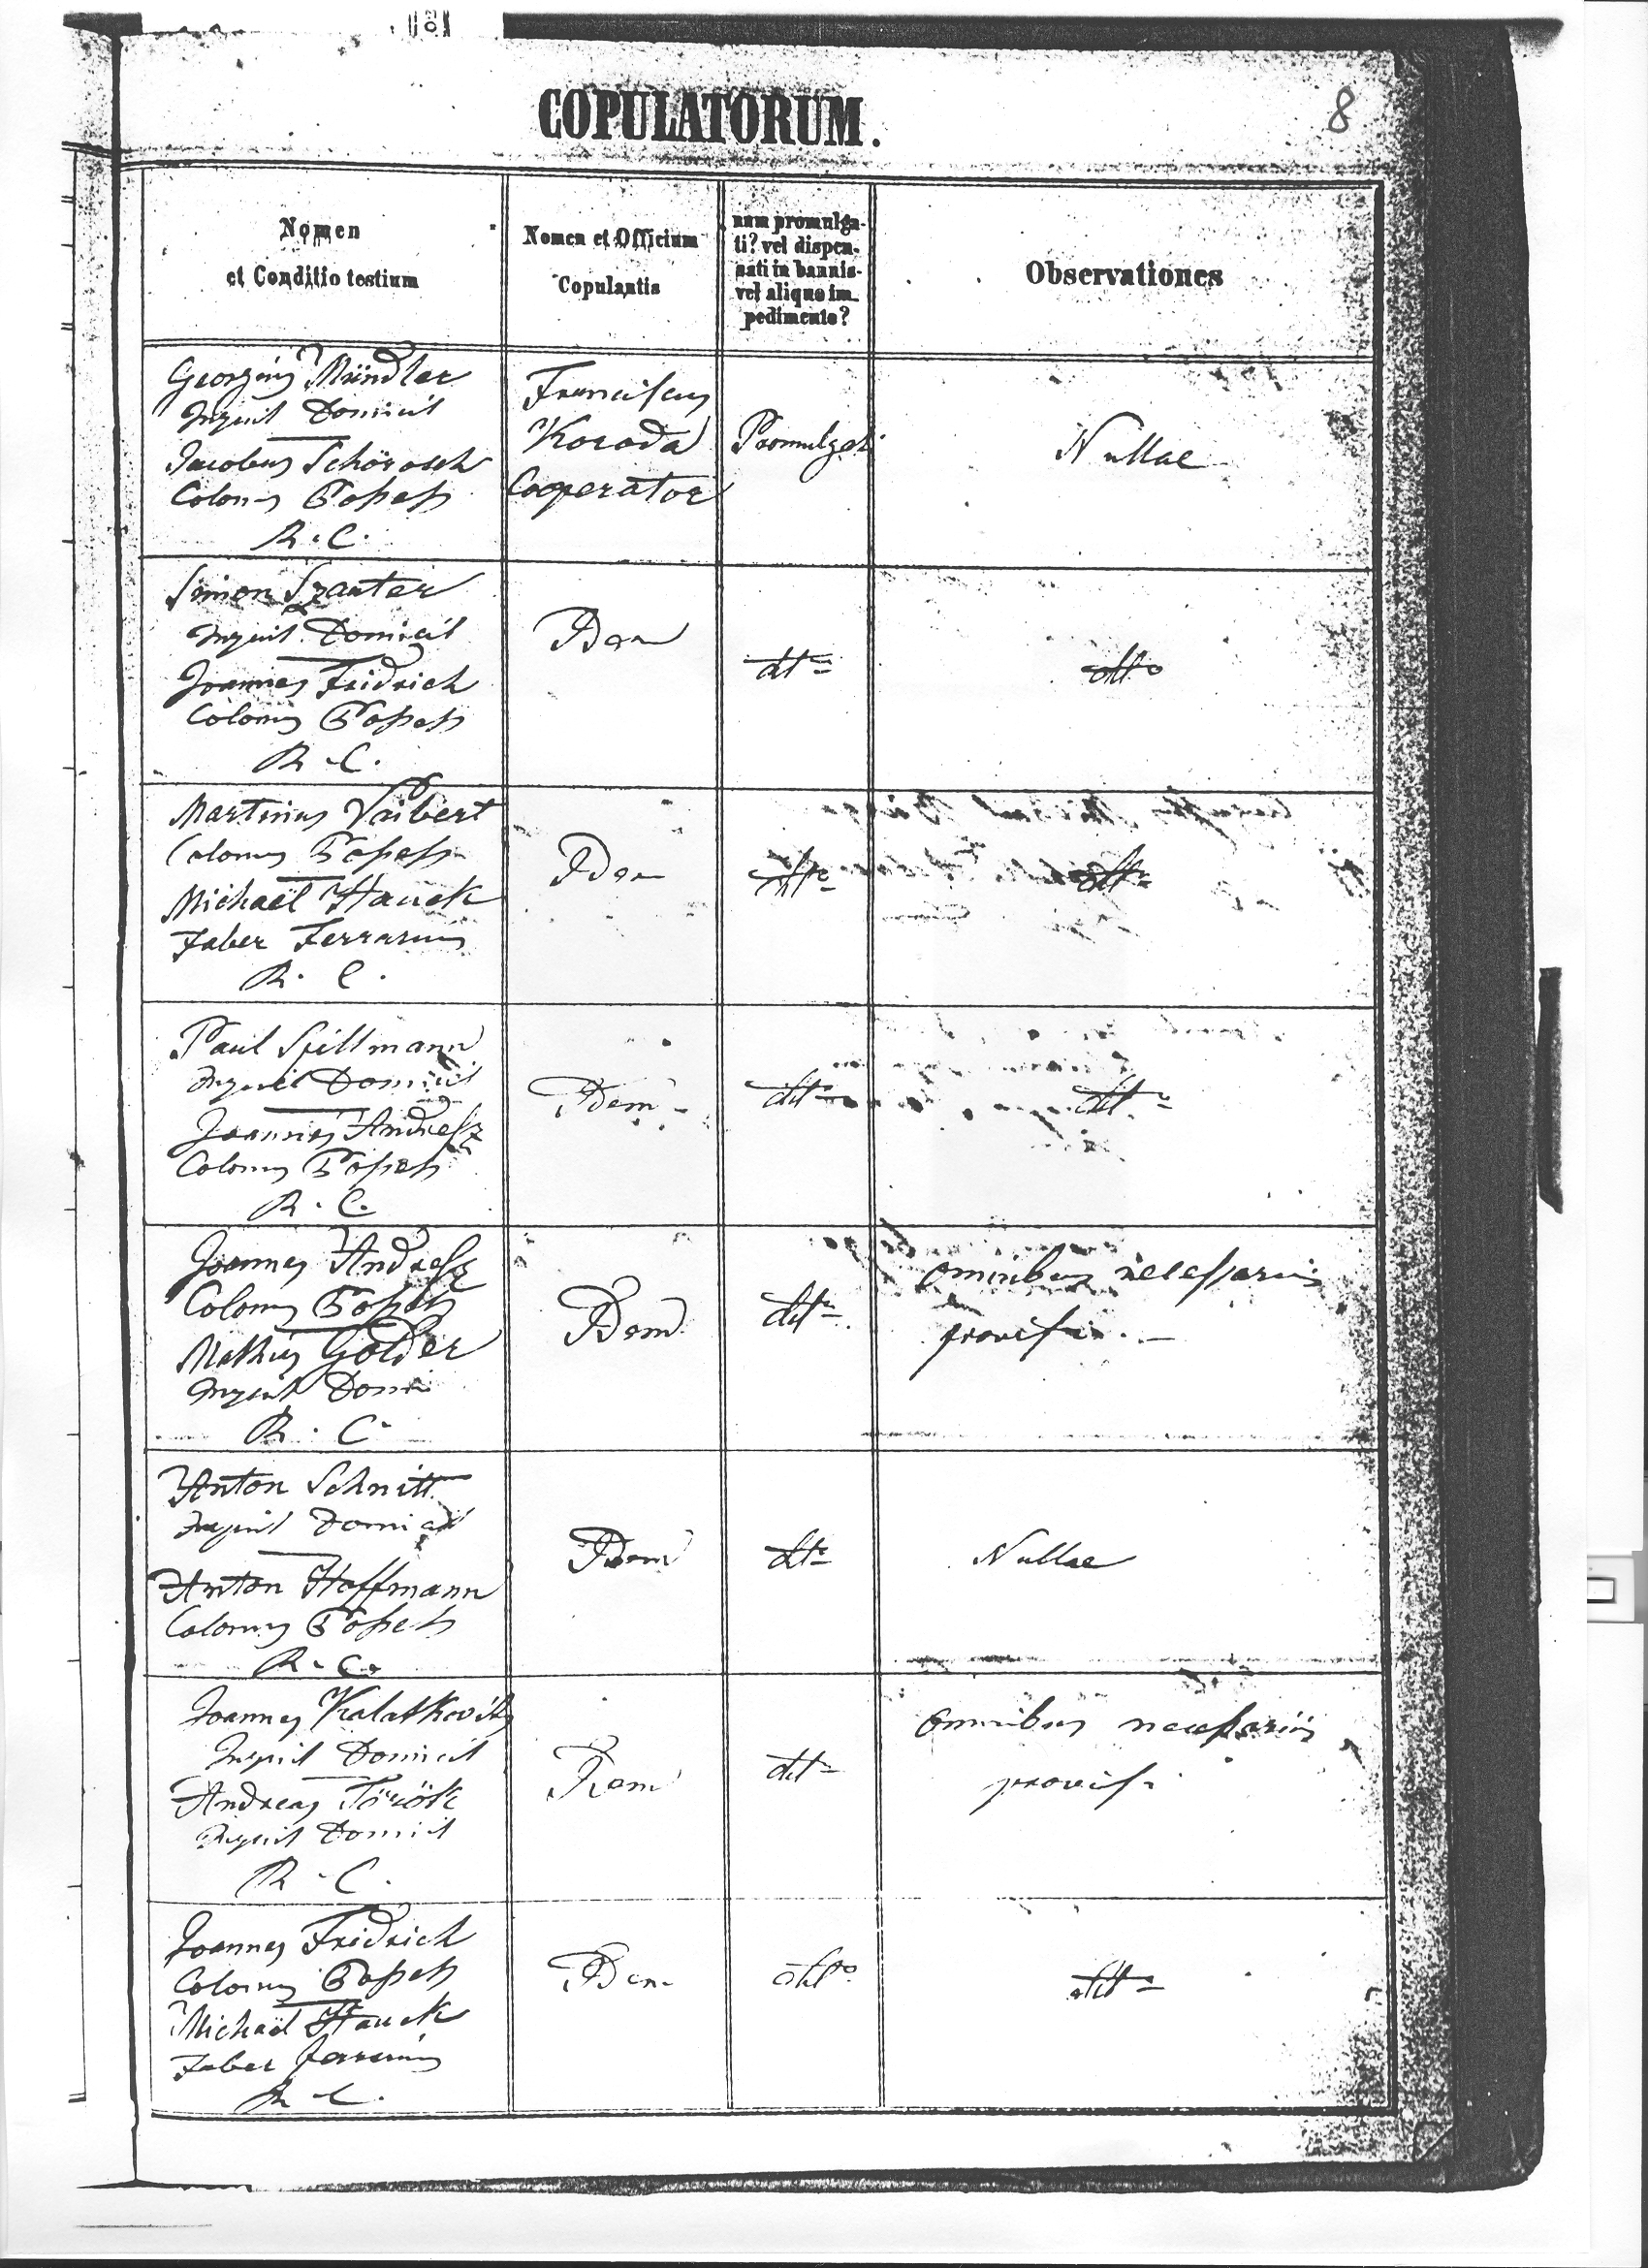 COPULATORUM.
8
Nomen
et Conditio testium
Nomen et Officium
Copulantis
num promulga-
ti? vel dispen-
sati in bannis
vel aliquo im-
pedimento?
Observationes
Georgius Mündler
Inquil Domicil
Jacobus Schörosch
Colonus
R. C.
Franciscus
Korada
Cooperator
Promulgati
Nullae
Simon Szauter
Inquil Domicil
Joannes Fridrich
Colonus
R. C.
Idem
dtto
dtto
Martinus Vaibert
Colonus
Michaël Hauck
Faber Ferrarius
R. C.
Idem
dtto
dtto
Paul Spillmann
Inquil Domicil
Joannes Andresz
Colonus
R. C.
Idem
dtto
dtto
Joannes Andresz
Colonus
Mathias Golder
Inquil Domi
R. C.
Idem
dtto
Omnibus necessariis
provisi.
Anton Schnitt
Inquil Domicil
Anton Hoffmann
Colonus
R. C.
Idem
dtto
Nullae
Joannes Kalatkovits
Inquil Domicil
Andreas Török
Inquil Domicil
R. C.
Idem
dtto
Omnibus necessariis
provisi
Joannes Fridrich
Colonus
Michaël Hauck
Faber ferrarius
R. C.
Idem
dtto
dtto